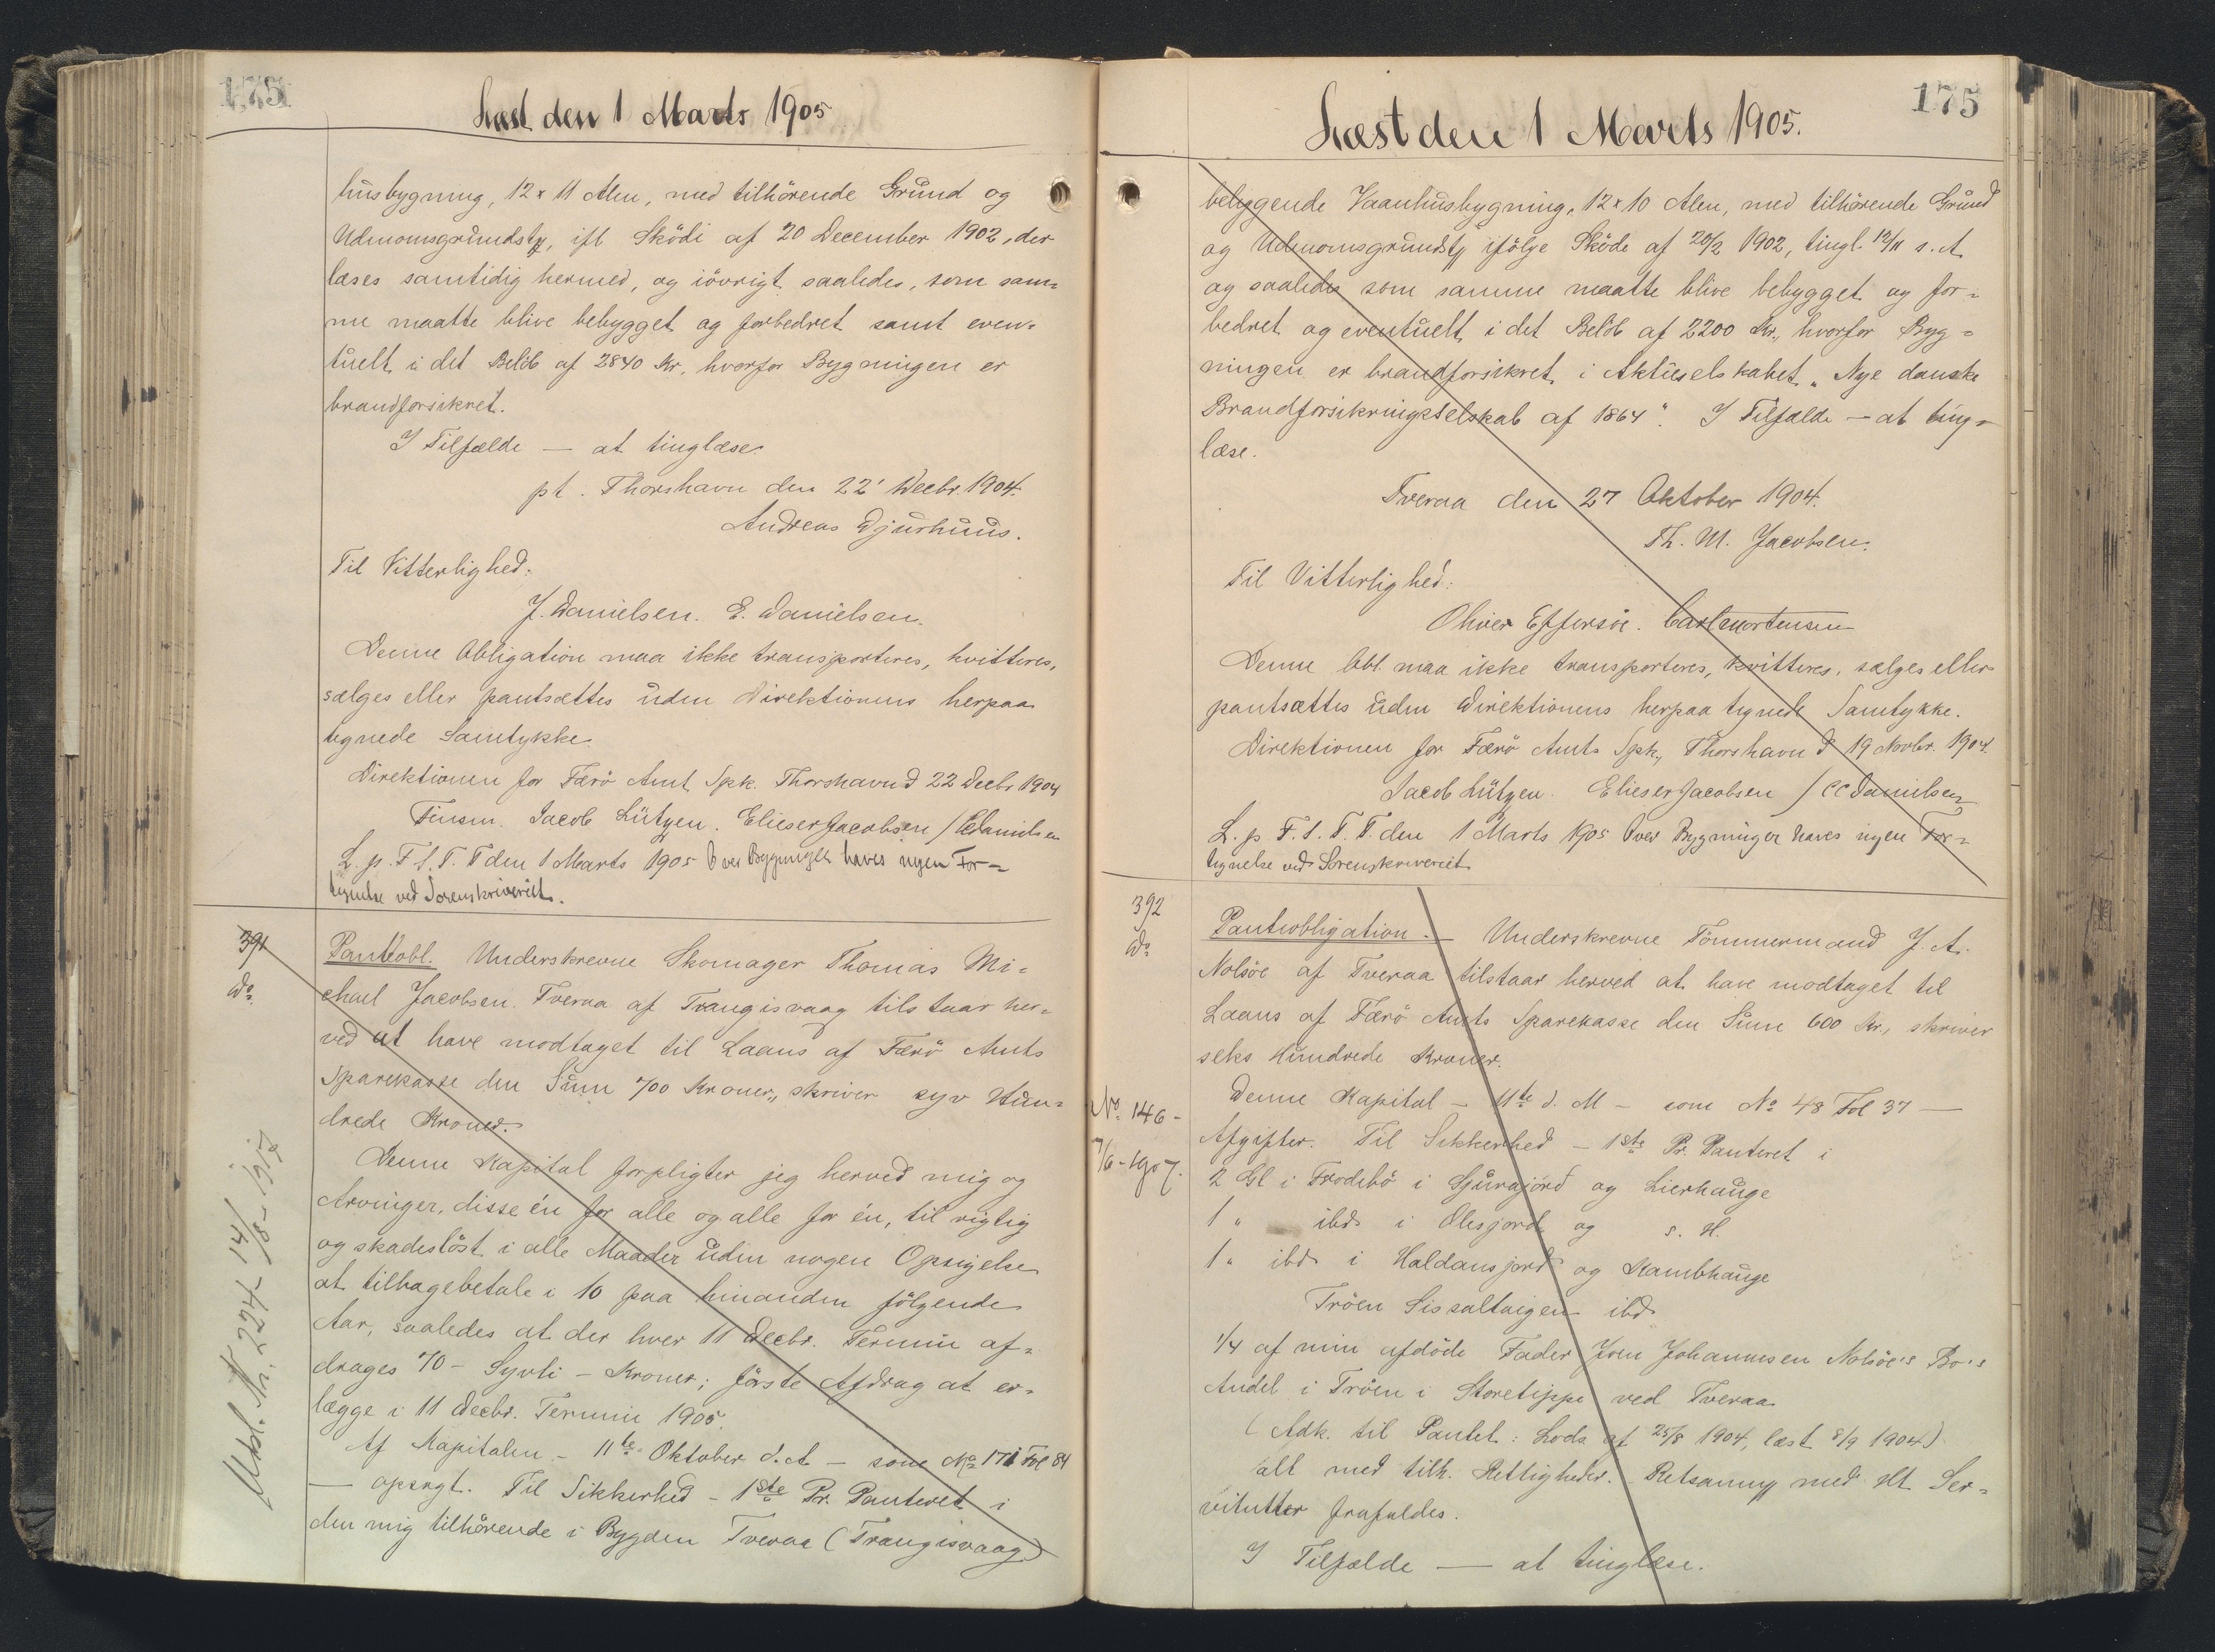 175
Læst den 1 Marts 1905
husbygning, 12 x 11 Alen, med tilhörende Grund og
Udmomsgrundsty, ifl Sködi af 20 December 1902, der
læses samtidig hermed, og iövrigt saaledes, som sam=
me maatte blive bebygget og forbedret samt even=
tuelt i det Belöb af 2840 Kr, hvorfor Bygningen er
brandforsikret.
I Tilfælde — at tinglæse
pt. Thorshavn den 22' Decbr. 1904.
Andreas Djurhuus.
Til Vitterlighed:
J. Danielsen. E. Danielsen.
Denne Obligation maa ikke transporteres, kvitteres,
sælges eller pantsættes uden Direktionens herpaa
tegnede Samtykke.
Direktionen for Færö Amt Spk. Thorshavn d 22 Decbr 1904
Finsen. Jacob Lützen. Elieser Jacobsen / CCDanielsen
L. p. F. S. T. T den 1 Marts 1905 Over Bygninger haves ingen For=
tegnelse ved Sorenskriveriet.
391
do.
Panteobl. Underskrevne Skomager Thomas Mi=
chael Jacobsen. Tveraa af Trangisvaag tilstaar her=
ved at have modtaget til Laans af Færö Amts
Sparekasse den Sum 700 Kroner, skriver syv Hun=
drede Kroner.
Denne Kapital forpligter jeg herved mig og
Arvinger, disse én for alle og alle for én, til rigtig
og skadeslöst i alle Maader uden nogen Opsigelse
at tilbagebetale i 10 paa hinanden fölgende
Aar, saaledes at der hver 11 Decbr. Termin af=
drages 70 - Syvti - Kroner; förste Afdrag at er=
lægge i 11 Decbr. Termin 1905.
Af Kapitalen - 11te Oktober d. A - som No 171 Fol 84
— opsagt. Til Sikkerhed - 1ste Pr. Panteret i
den mig tilhörende i Bygden Tveraa (Trangisvaag)
Nr. 224 - 14/8 - 1917
175
Læst den 1 Marts 1905.
beliggende Vaanhusbygning, 12 x 10 Alen, med tilhörende Grund
og Udmomsgrundsty ifölge Sköde af 20/2 1902, tingl. 12/11 s. A
og saaledes som samme maatte blive bebygget og for=
bedret og eventuelt i det Belöb af 2200 Kr., hvorfor Byg=
ningen er brandforsikret i Aktieselskabet "Nye danske
Brandforsikringsselskab af 1864". I Tilfælde — at ting=
læse.
Tveraa den 27 Oktober 1904.
Th. M. Jacobsen.
Til Vitterlighed:
Oliver Effersöe. Carl Mortensen
Denne Obl. maa ikke transporteres, kvitteres, sælges eller
pantsættes uden Direktionens herpaa tegnede Samtykke.
Direktionen for Færö Amts Spk., Thorshavn d 19 Novbr. 1904.
Jacob Lützen. Elieser Jacobsen / CCDanielsen
L. p. F. S. T. T. den 1 Marts 1905 Over Bygninger haves ingen For=
tegnelse ved Sorenskriveriet
392
do.
Panteobligation. — Underskrevne Tömmermand J. A.
Nolsöe af Tveraa tilstaar herved at have modtaget til
Laans af Færö Amts Sparekasse den Sum 600 Kr., skriver
seks Hundrede Kroner.
Denne Kapital - 11te d. M - som No 48 Fol 37 —
No. 146 -
7/6 - 1907.
Afgifter. Til Sikkerhed - 1ste Pr. Panteret i
2 Gl i Frodebö i Gjurajörd og Lierhauge
1 " ibd i Olesjord og s. H.
1 " ibd i Haldansjord og Kambhauge
Tröen Sissaltaigen ibd
1/4 af min afdöde Fader Joen Johannesen Nolsöe's Bo's
Andel i Tröen i Storetippe ved Tveraa
(Adk. til Pantet: Lods. af 25/8 1904, læst 8/9 1904)
alt med tilh. Rettigheder. - Retsanmg med Ht Ser=
vitutter frafaldes.
I Tilfælde — at tinglæse.